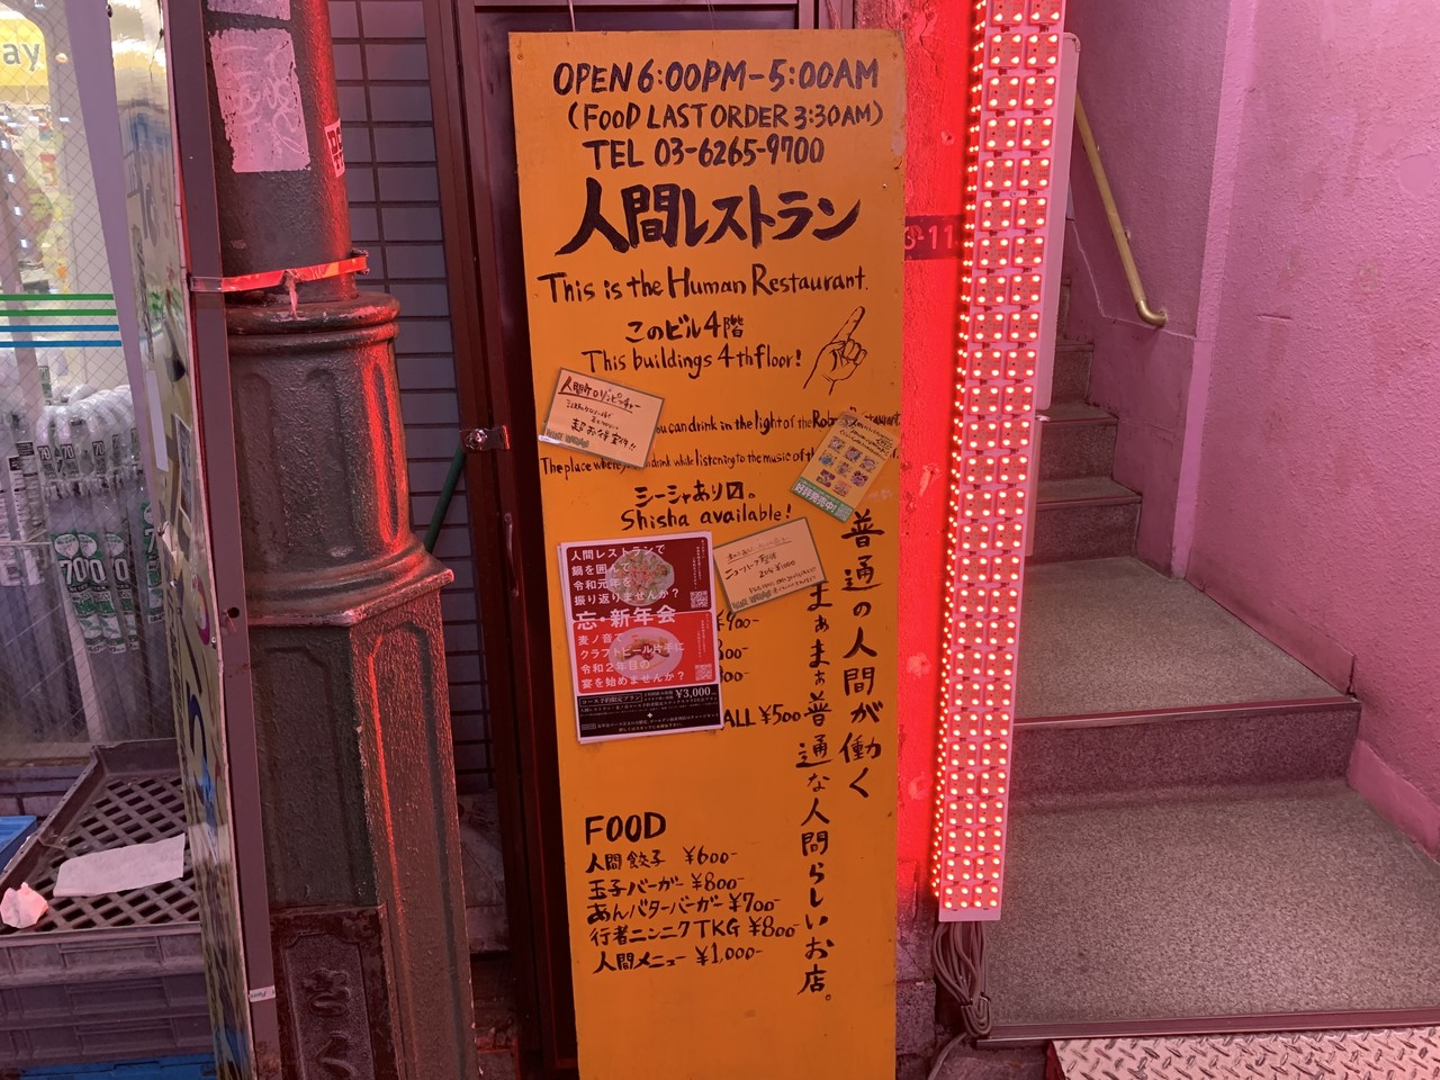 OPEN 6:00PM-5:00AM
(FOOD LAST ORDER 3:30AM)
TEL 03-6265-9700
人間レストラン
This is the Human Restaurant.
このビル4階
This buildings 4th floor!
ou can drink in the light of the Rob
The place where you drink while listening to the music of th
シーシャあり〼。
Shisha available!
超お得
好評発売中!
人間レストランで
鍋を囲んで
令和元年を
振り返りませんか?
忘・新年会
麦ノ音で
クラフトビール片手に
令和2年目の
宴を始めませんか?
コース予約限定プラン
¥3,000
¥900-
00-
00-
ALL ¥500
普通の人間が働く
まぁまぁ普通な人間らしいお店。
FOOD
人間餃子 ¥600-
玉子バーガー ¥800-
あんバターバーガー ¥700-
行者ニンニクTKG ¥800-
人間メニュー ¥1,000-
-11
ay
70
70
700